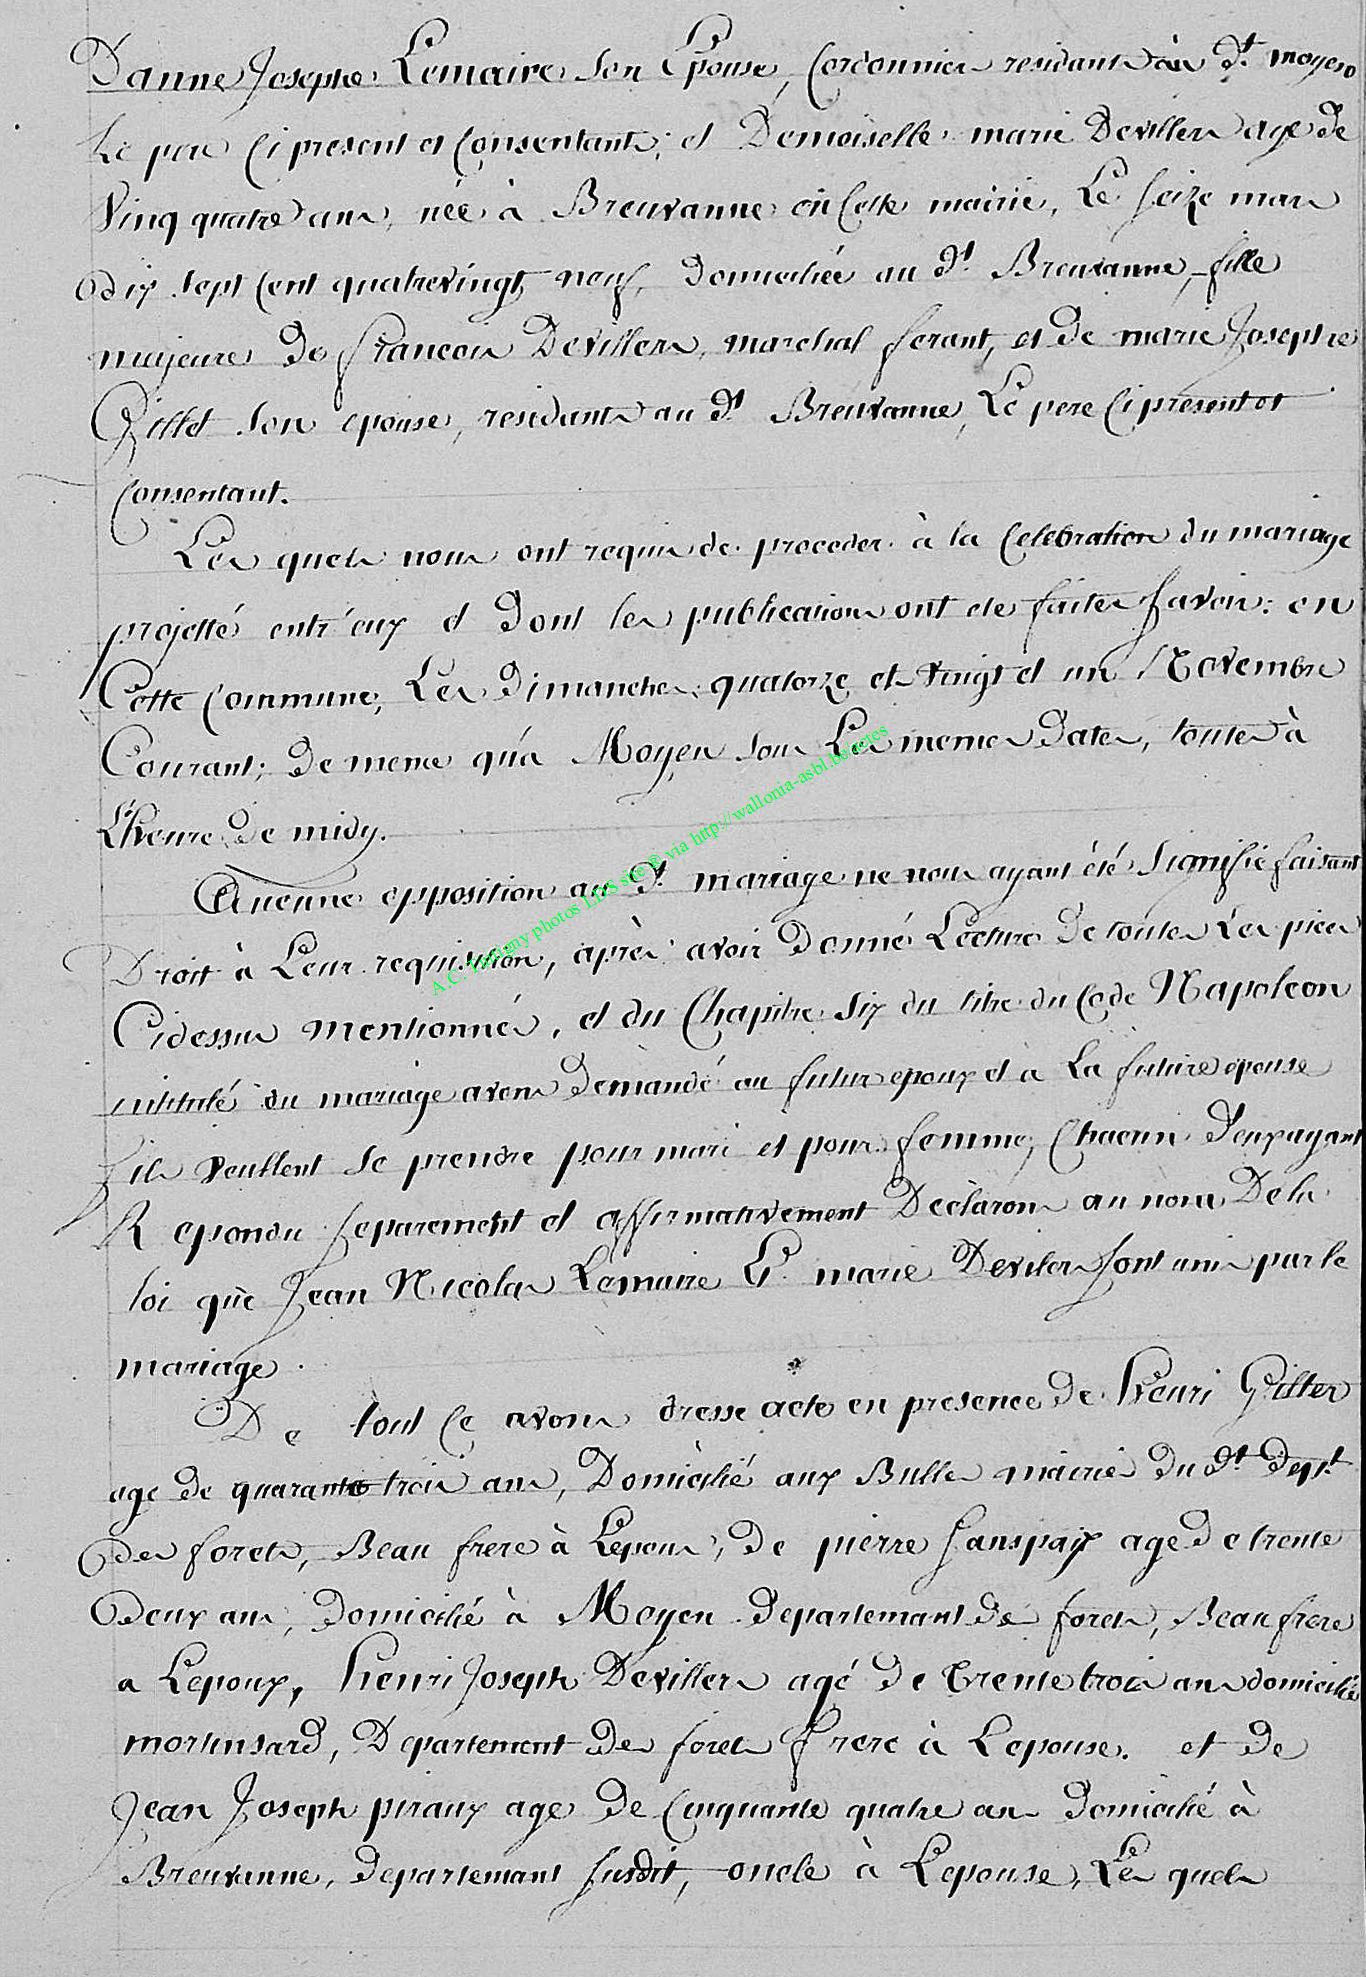 Danne Josephe Lemaire son Epouse, Cordonnier residants au dt. moyen
Le pere Ci present et Consentant; et Demoiselle marie Devillers age de
Vinq quatre ans, née à Breuvanne en Cette mairie, Le seize mars
dix sept Cent quatrevingt neuf, domiciliée au dt. Breuvanne, fille
majeure de francois Devillers, marchal ferant, et de marie Josephe
Gillet son epouse, residants au dt. Breuvanne, Le pere Ci present et
Consentant.
Les quels nous ont requis de proceder à la Celebration du mariage
projetté entr'eux et Dont les publications ont eté faites Savoir: en
Cette Commune, Les Dimanches quatorze et vingt et un Novembre
Courant; De meme qu'a Moyen sous Les memes Dates, toutes à
L'heure De midy.
Aucune opposition au dt. mariage ne nous ayant été Signifie faisant
Droit à Leur requisition, après avoir Donné Lecture De toutes Les pieces
Cidessus mentionnés, et du Chapitre Six du titre du Code Napoleon
intitulé du mariage avons Demandé au futur epoux et a La future épouse
s'ils veullent se prendre pour mari et pour femme; Chacun d'eux ayant
Repondu Separement et affirmativement Déclarons au nom De la
loi que Jean Nicolas Lemaire Et marie Devilers sont unis par le
mariage.
De tout Ce avons dressé acte en presence de Henri Gilter
age de quarante trois ans, Domicilié aux Bulles mairie du dt. dept.
des forets, Beau frere à Lepoux, de pierre Sanspaix age de trente
deux ans, Domicilié à Moyen departemant des forets, Beau frere
a Lepoux, henri Joseph Devillers agé de trente trois ans domicilié
mortinsard, Departement des forets frere à Lepouse. et de
Jean Joseph piraux age de Cinquante quatre ans Domicilié à
Breuvanne, departemant Susdit, oncle à Lepouse, Les quels
A.C. Tintigny photos LDS site @ via http://wallonia-asbl.be/actes